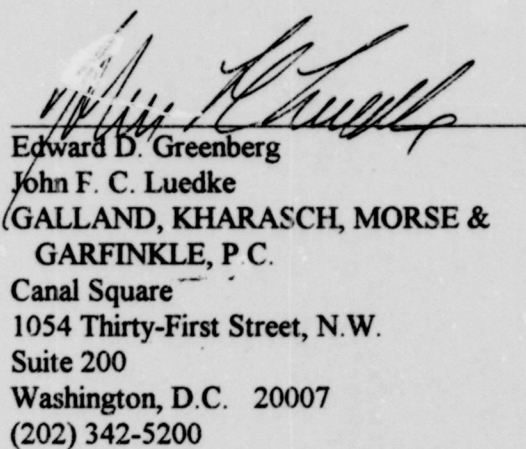 Edward D. Greenberg
John F. C. Luedke
GALLAND, KHARASCH, MORSE &
GARFINKLE, P.C.
Canal Square
1054 Thirty-First Street, N.W.
Suite 200
Washington, D.C. 20007
(202) 342-5200